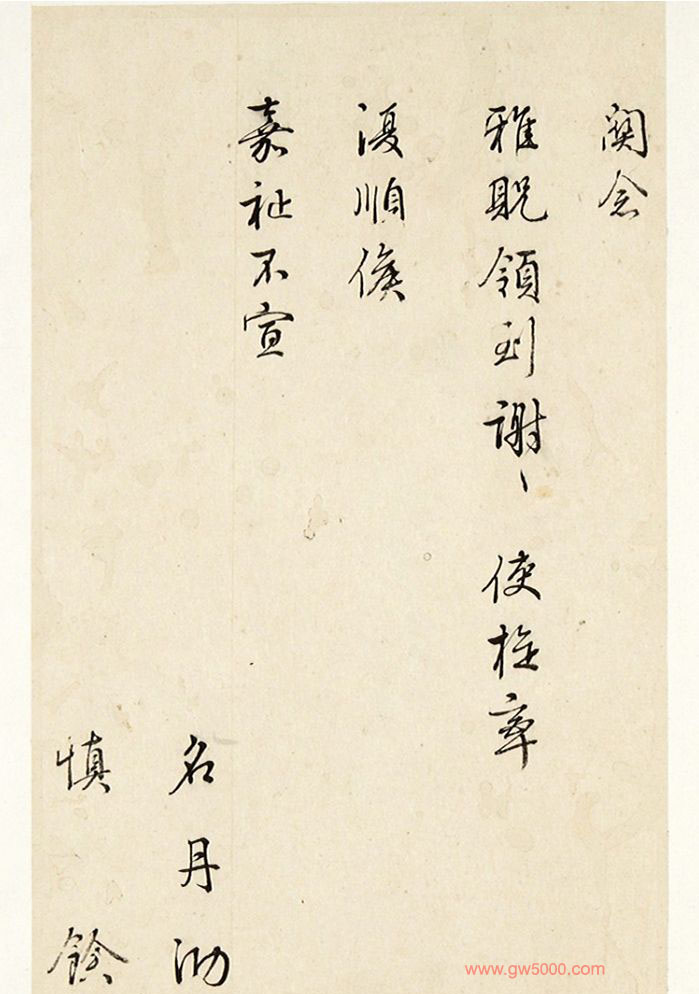 関念
雅貺領到謝〻 使旋率
復順候
嘉祉不宣
名丹泐
慎餘
www.gw5000.com